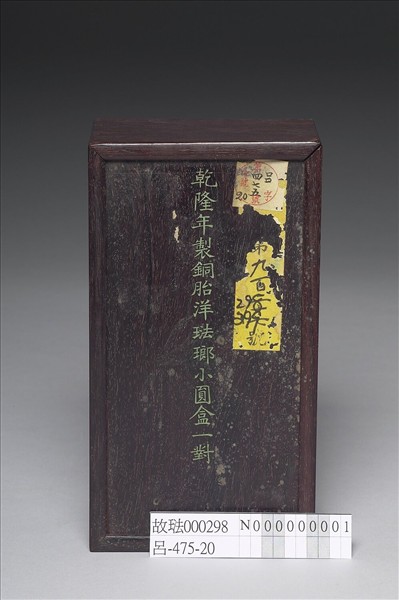 乾隆年製銅胎洋琺瑯小圓盒一對
呂字
四七五號
20
第九百
298
號
故琺000298
呂-475-20
N000000001